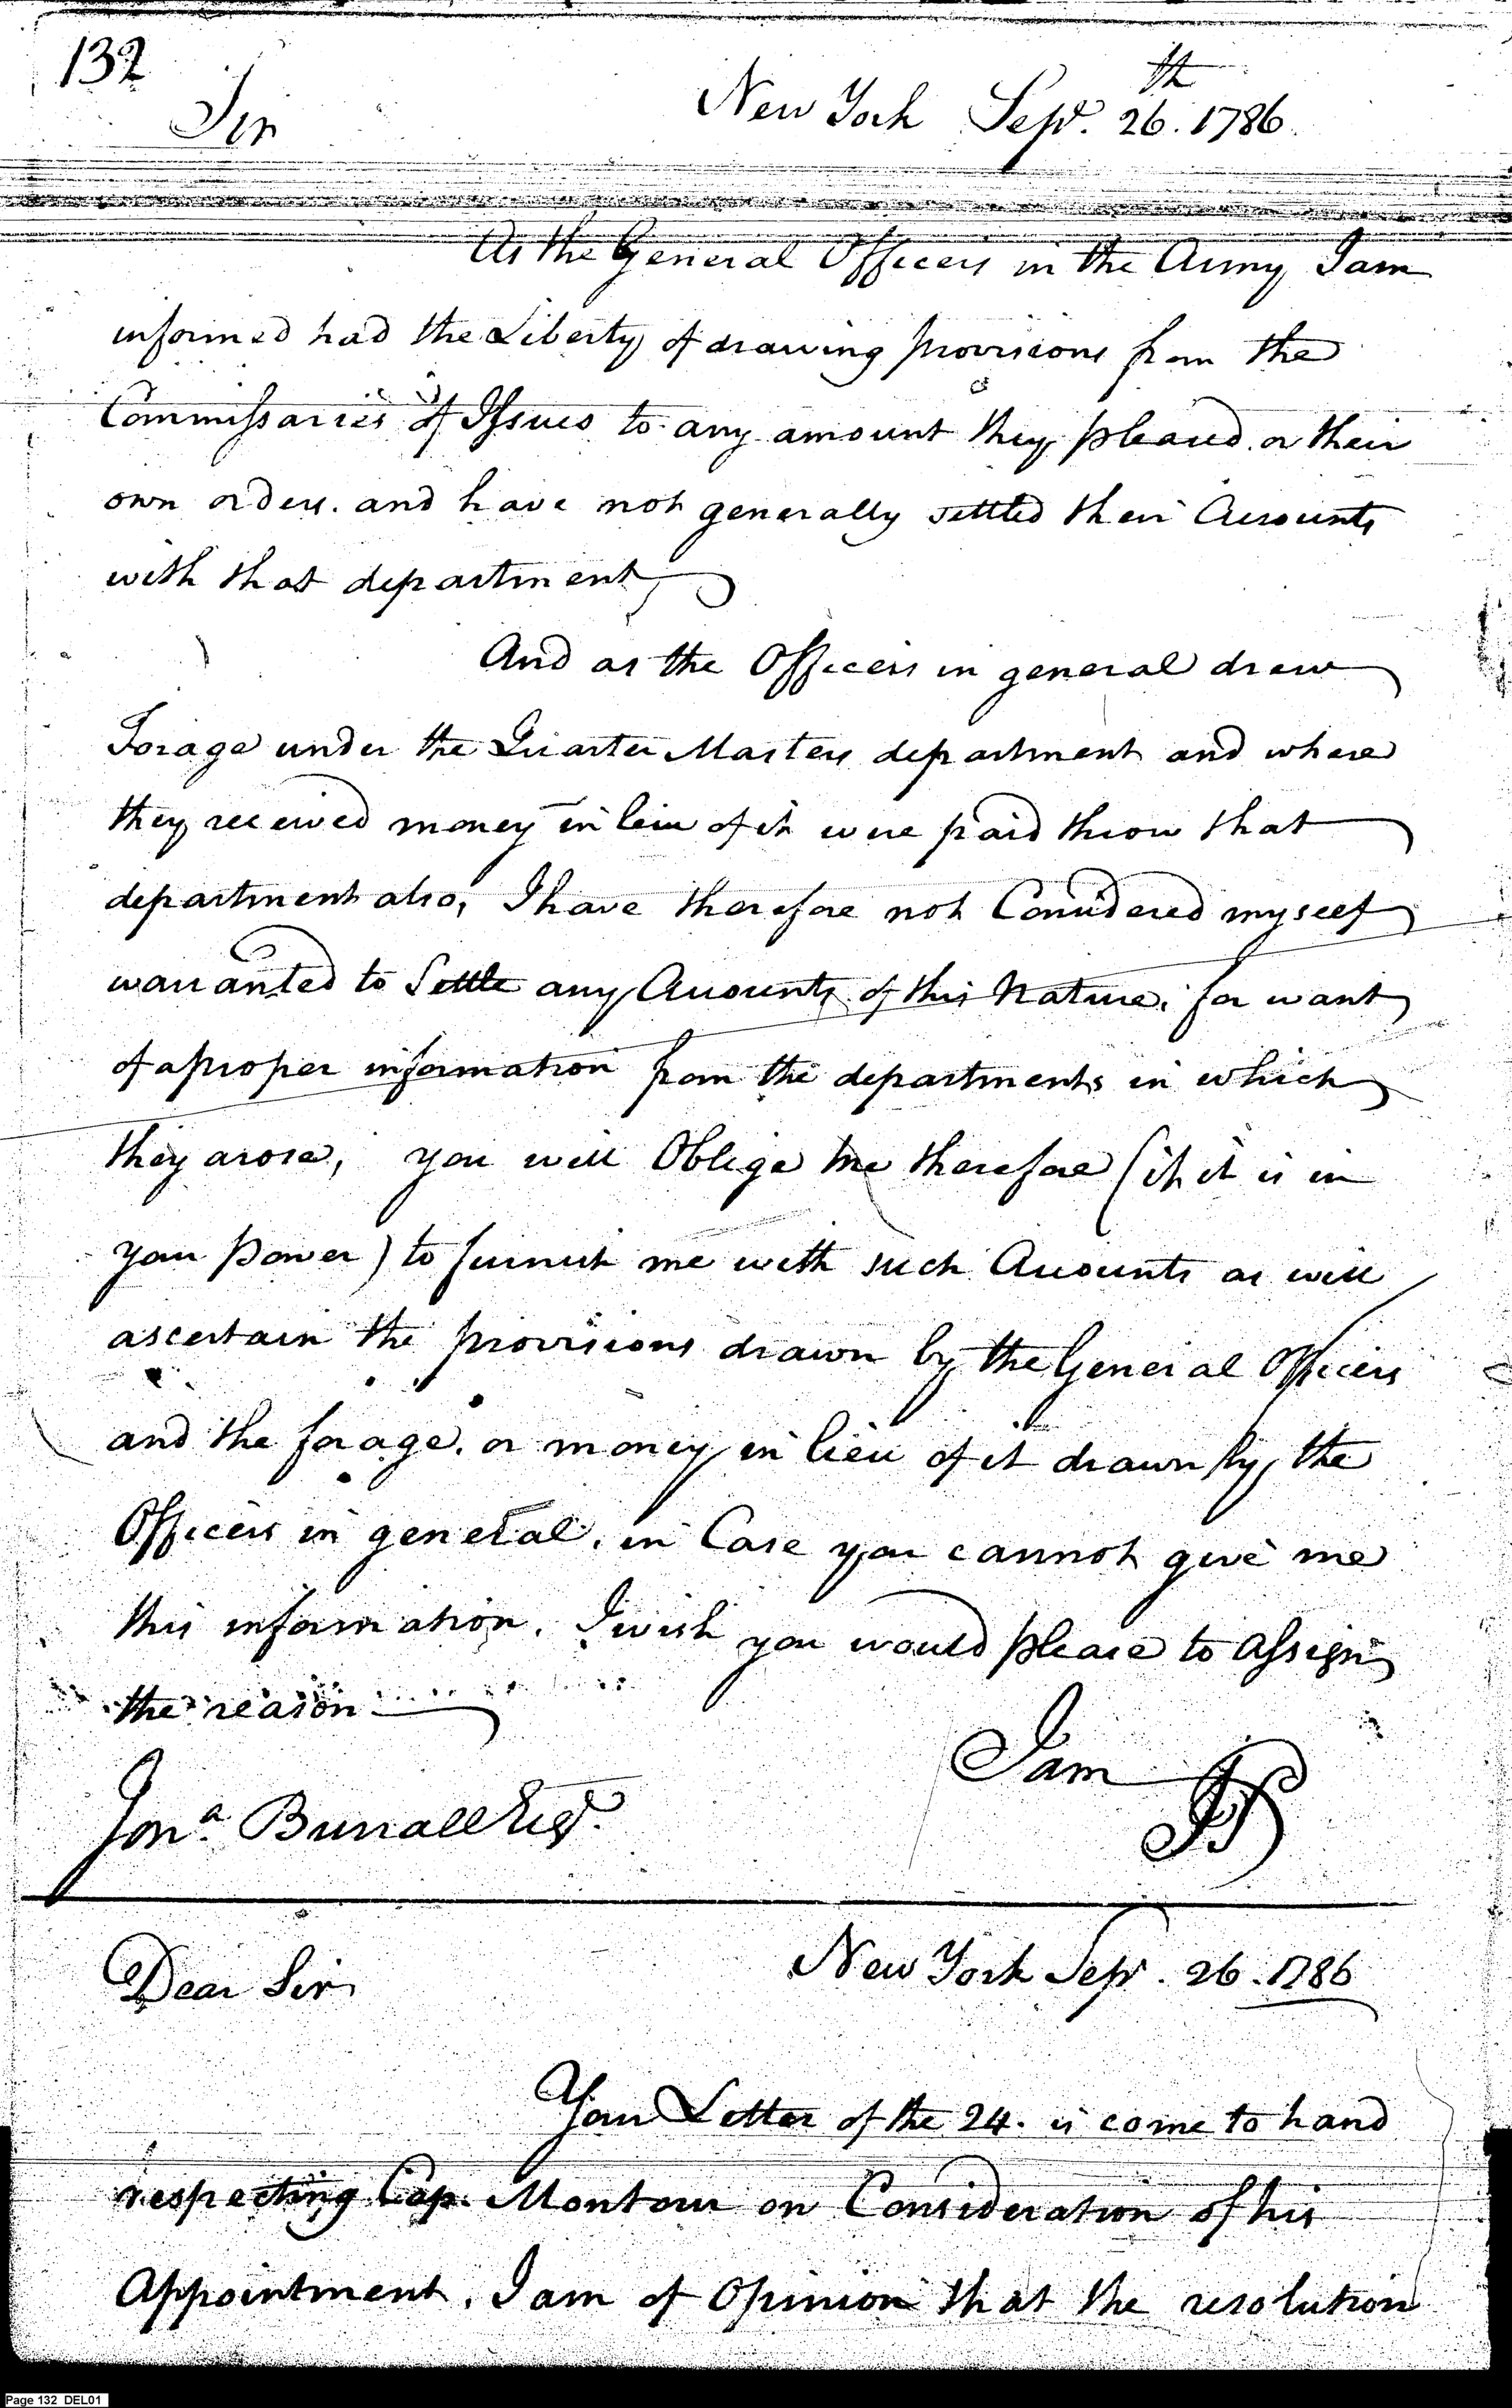 132
New York Sepr. 26th. 1786.
Sir
As the General Officers in the Army I am
informed had the Liberty of drawing provisions from the
Commissaries of Issues to any amount they pleased on their
own orders. and have not generally settled their Accounts
with that department
And as the Officers in general drew
Forage under the Quarter Masters department and where
they received money in leiu of it were paid throw that
department also, I have therefore not Considered myself
warranted to Settle any Accounts of this Nature, for want
of a proper information from the departments in which
they arose, you will Oblige me therefore (if it is in
your power) to furnish me with such Accounts as will
ascertain the provisions drawn by the General Officers
and the forage, or money in lieu of it drawn by the
Officers in general. in Case you cannot give me
this information. I wish you would please to assign
the reason
I am
Jona. Burrall Esqr.
JP
Dear Sir
New York Sepr. 26. 1786
Your Letter of the 24. is come to hand
respecting Cap. Montour on Consideration of his
Appointment. I am of Opinion that the resolution
Page 132 DEL01